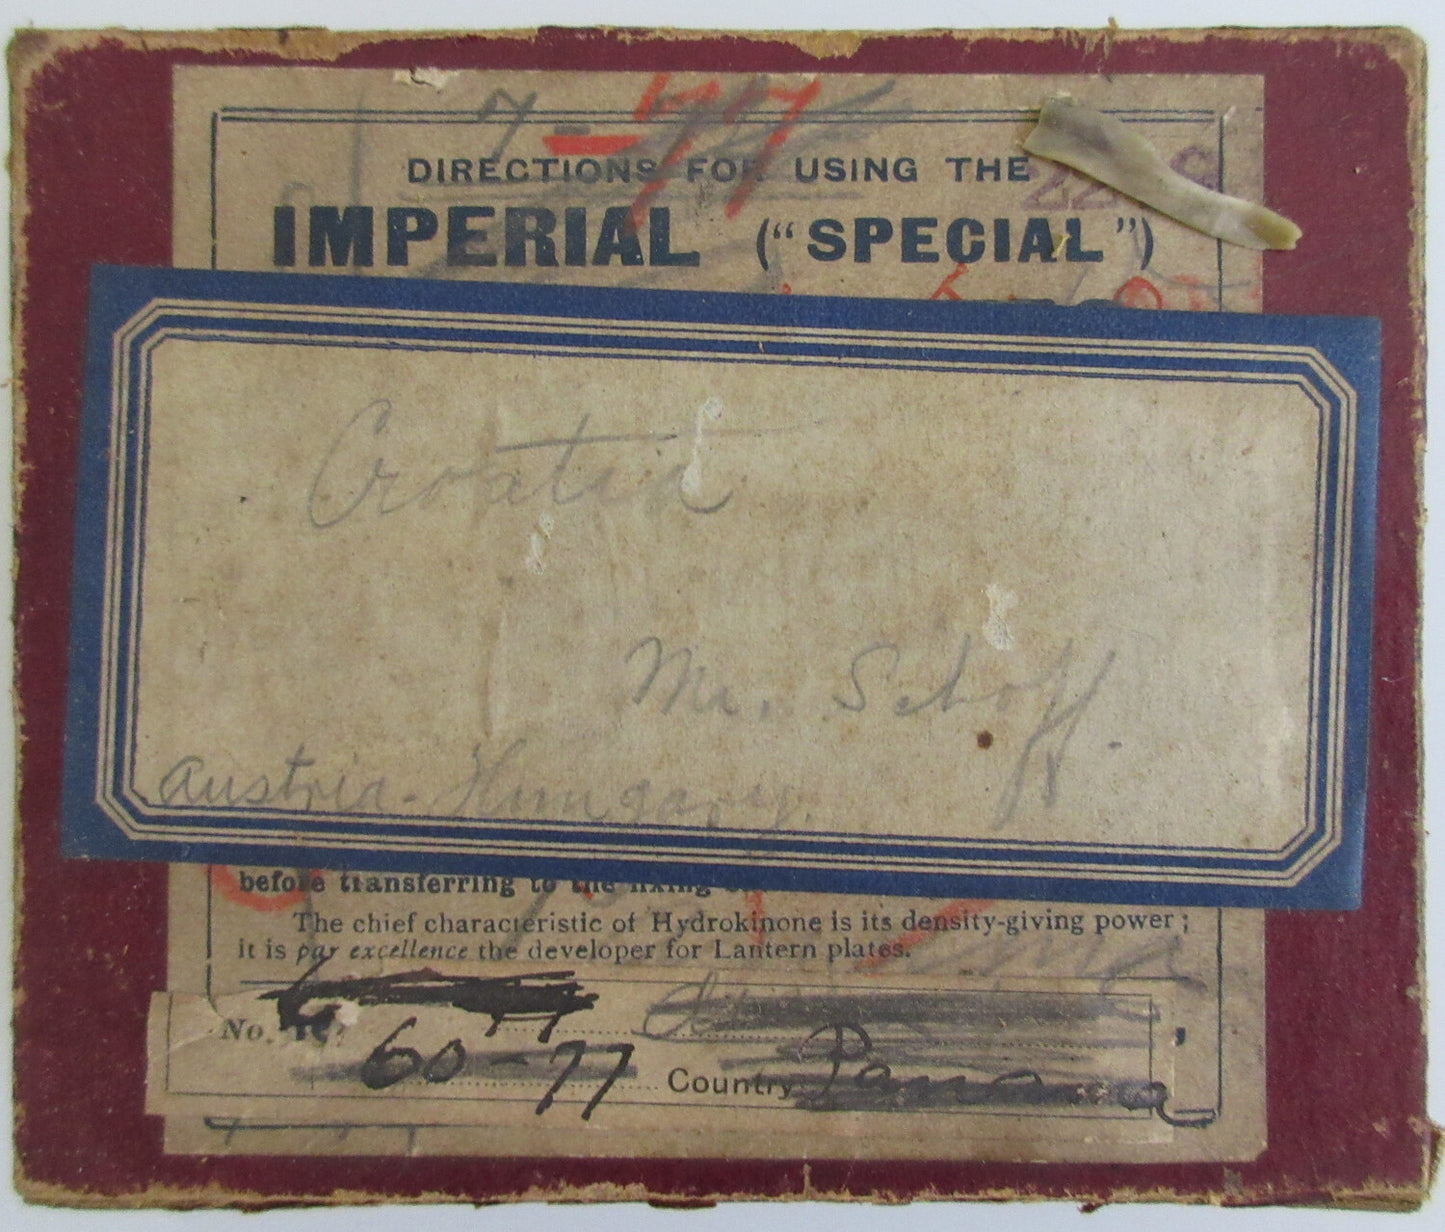 7-77
DIRECTIONS FOR USING THE
IMPERIAL ("SPECIAL")
Croatia
Mr. Schoff.
Austria-Hungary.
before transferring to the fixing
The chief characteristic of Hydrokinone is its density-giving power;
it is par excellence the developer for Lantern plates.
No.
60-77 Country Panama